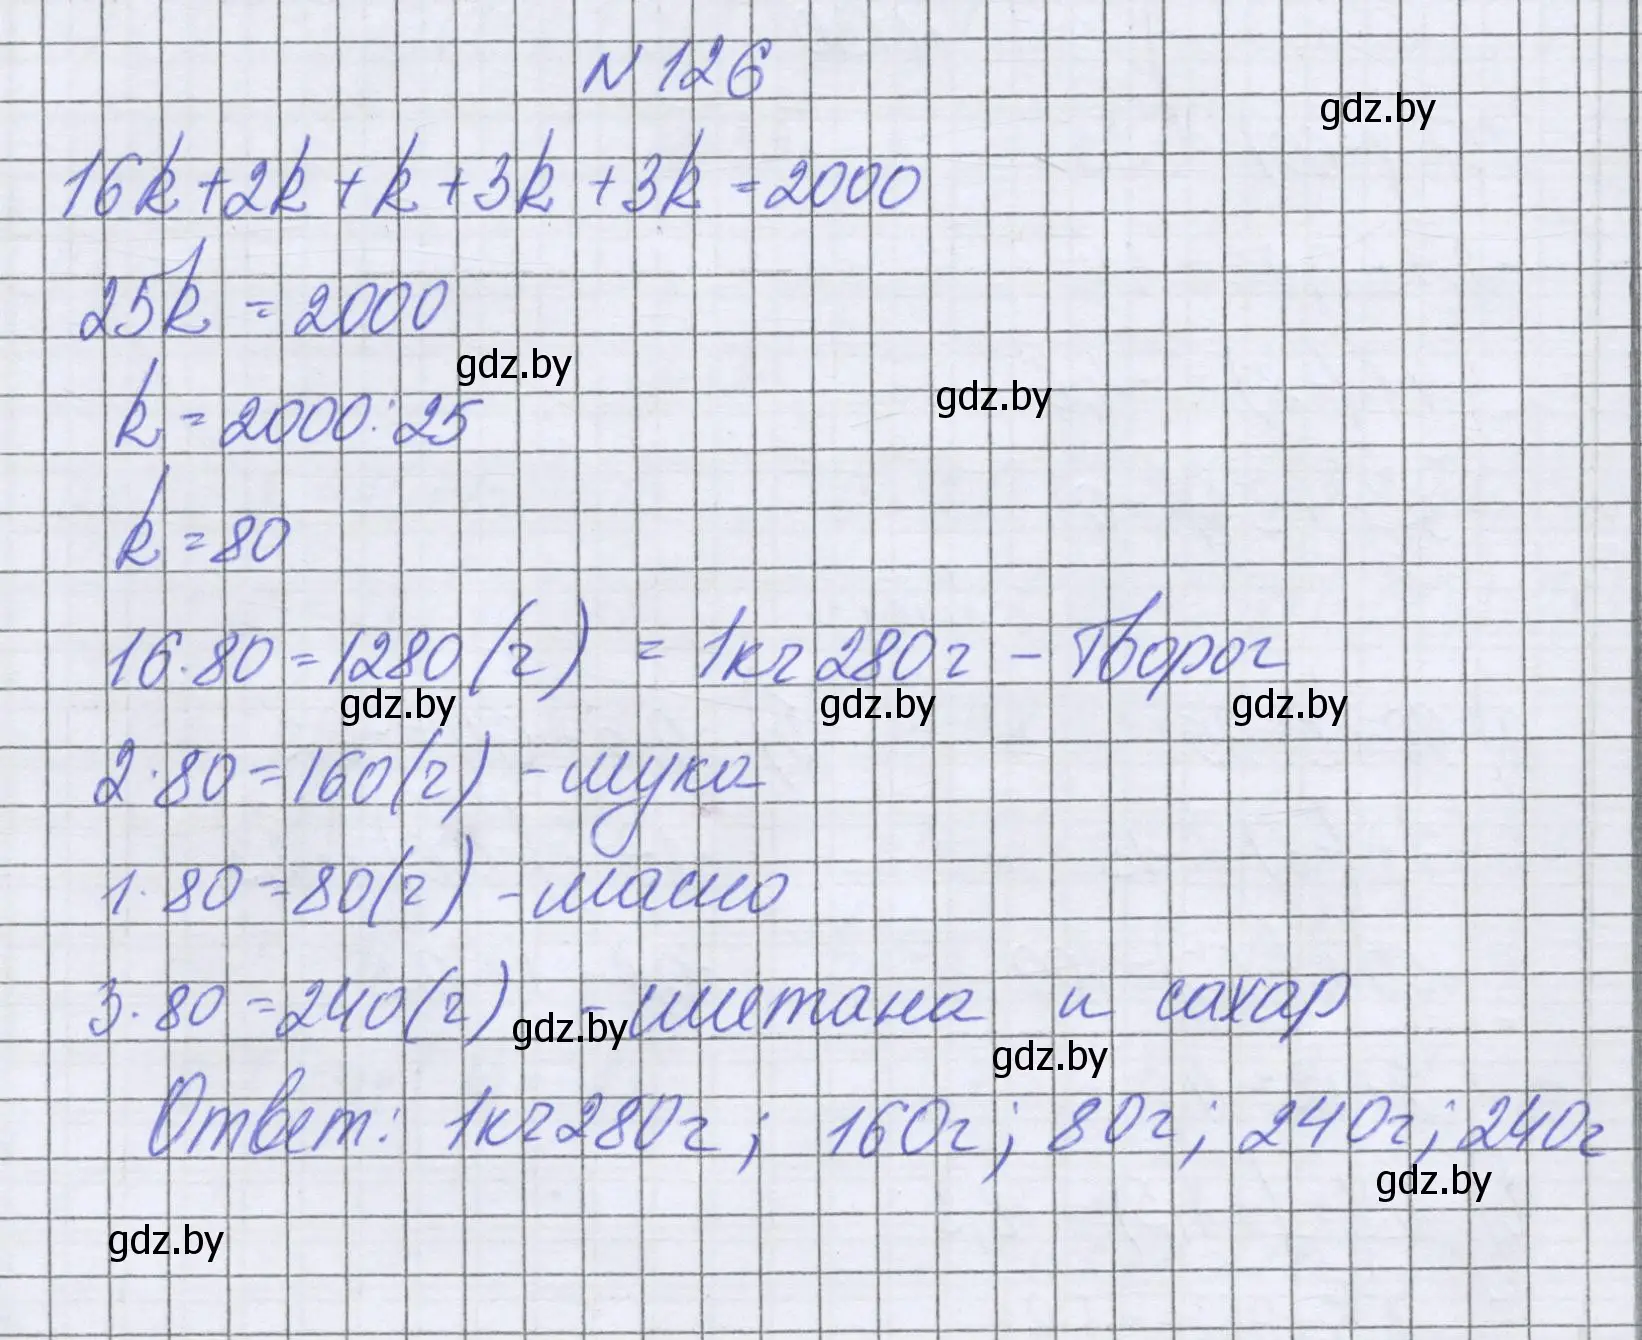 N 126
gdz.by
16k + 2k + k + 3k + 3k = 2000
25k = 2000
gdz.by
gdz.by
k = 2000 : 25
k = 80
16 · 80 = 1280 (г) = 1кг 280г - творог
gdz.by gdz.by gdz.by
2 · 80 = 160 (г) - мука
1 · 80 = 80 (г) - масло
3 · 80 = 240 (г) - сметана и сахар
gdz.by
gdz.by
Ответ: 1кг 280г; 160г; 80г; 240г; 240г
gdz.by
gdz.by